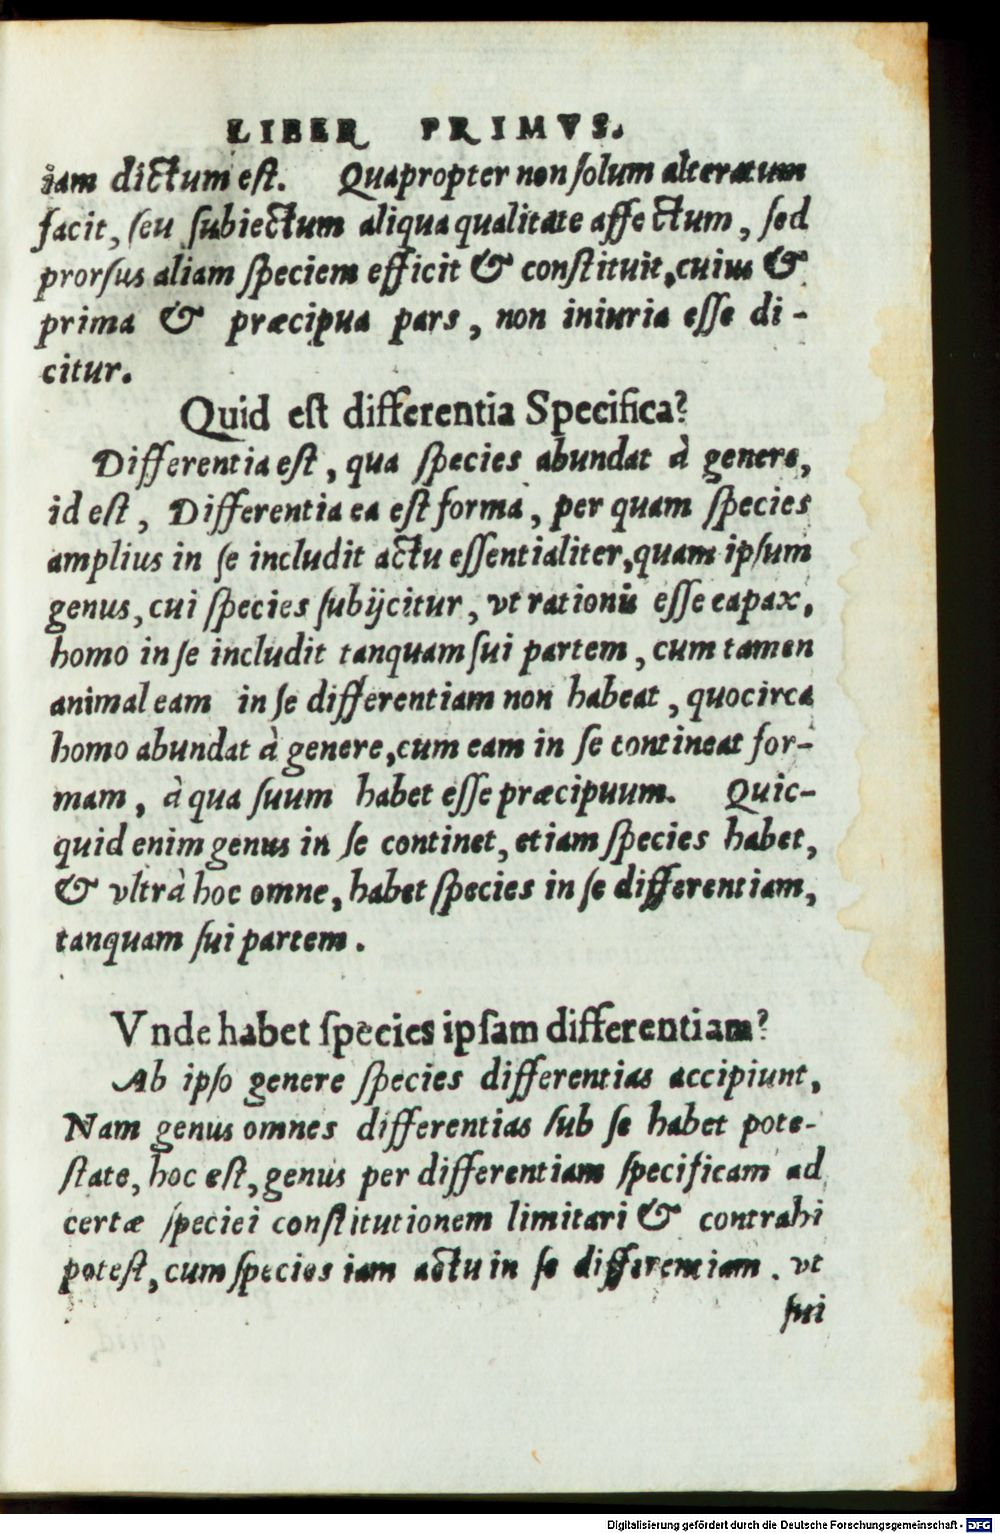 LIBER PRIMVS.
iam dictum est. Quapropter non solum alteratum
facit, seu subiectum aliqua qualitate affectum, sed
prorsus aliam speciem efficit & constituit, cuius &
prima & præcipua pars, non iniuria esse di-
citur.
Quid est differentia Specifica?
Differentia est, qua species abundat à genere,
id est, Differentia ea est forma, per quam species
amplius in se includit actu essentialiter, quam ipsum
genus, cui species subijcitur, vt rationis esse capax,
homo in se includit tanquam sui partem, cum tamen
animal eam in se differentiam non habeat, quocirca
homo abundat à genere, cum eam in se contineat for-
mam, à qua suum habet esse præcipuum. Quic-
quid enim genus in se continet, etiam species habet,
& vltrà hoc omne, habet species in se differentiam,
tanquam sui partem.
Vnde habet species ipsam differentiam?
Ab ipso genere species differentias accipiunt,
Nam genus omnes differentias sub se habet pote-
state, hoc est, genus per differentiam specificam ad
certæ speciei constitutionem limitari & contrahi
potest, cum species iam actu in se differentiam. vt
sui
Digitalisierung gefördert durch die Deutsche Forschungsgemeinschaft - DFG